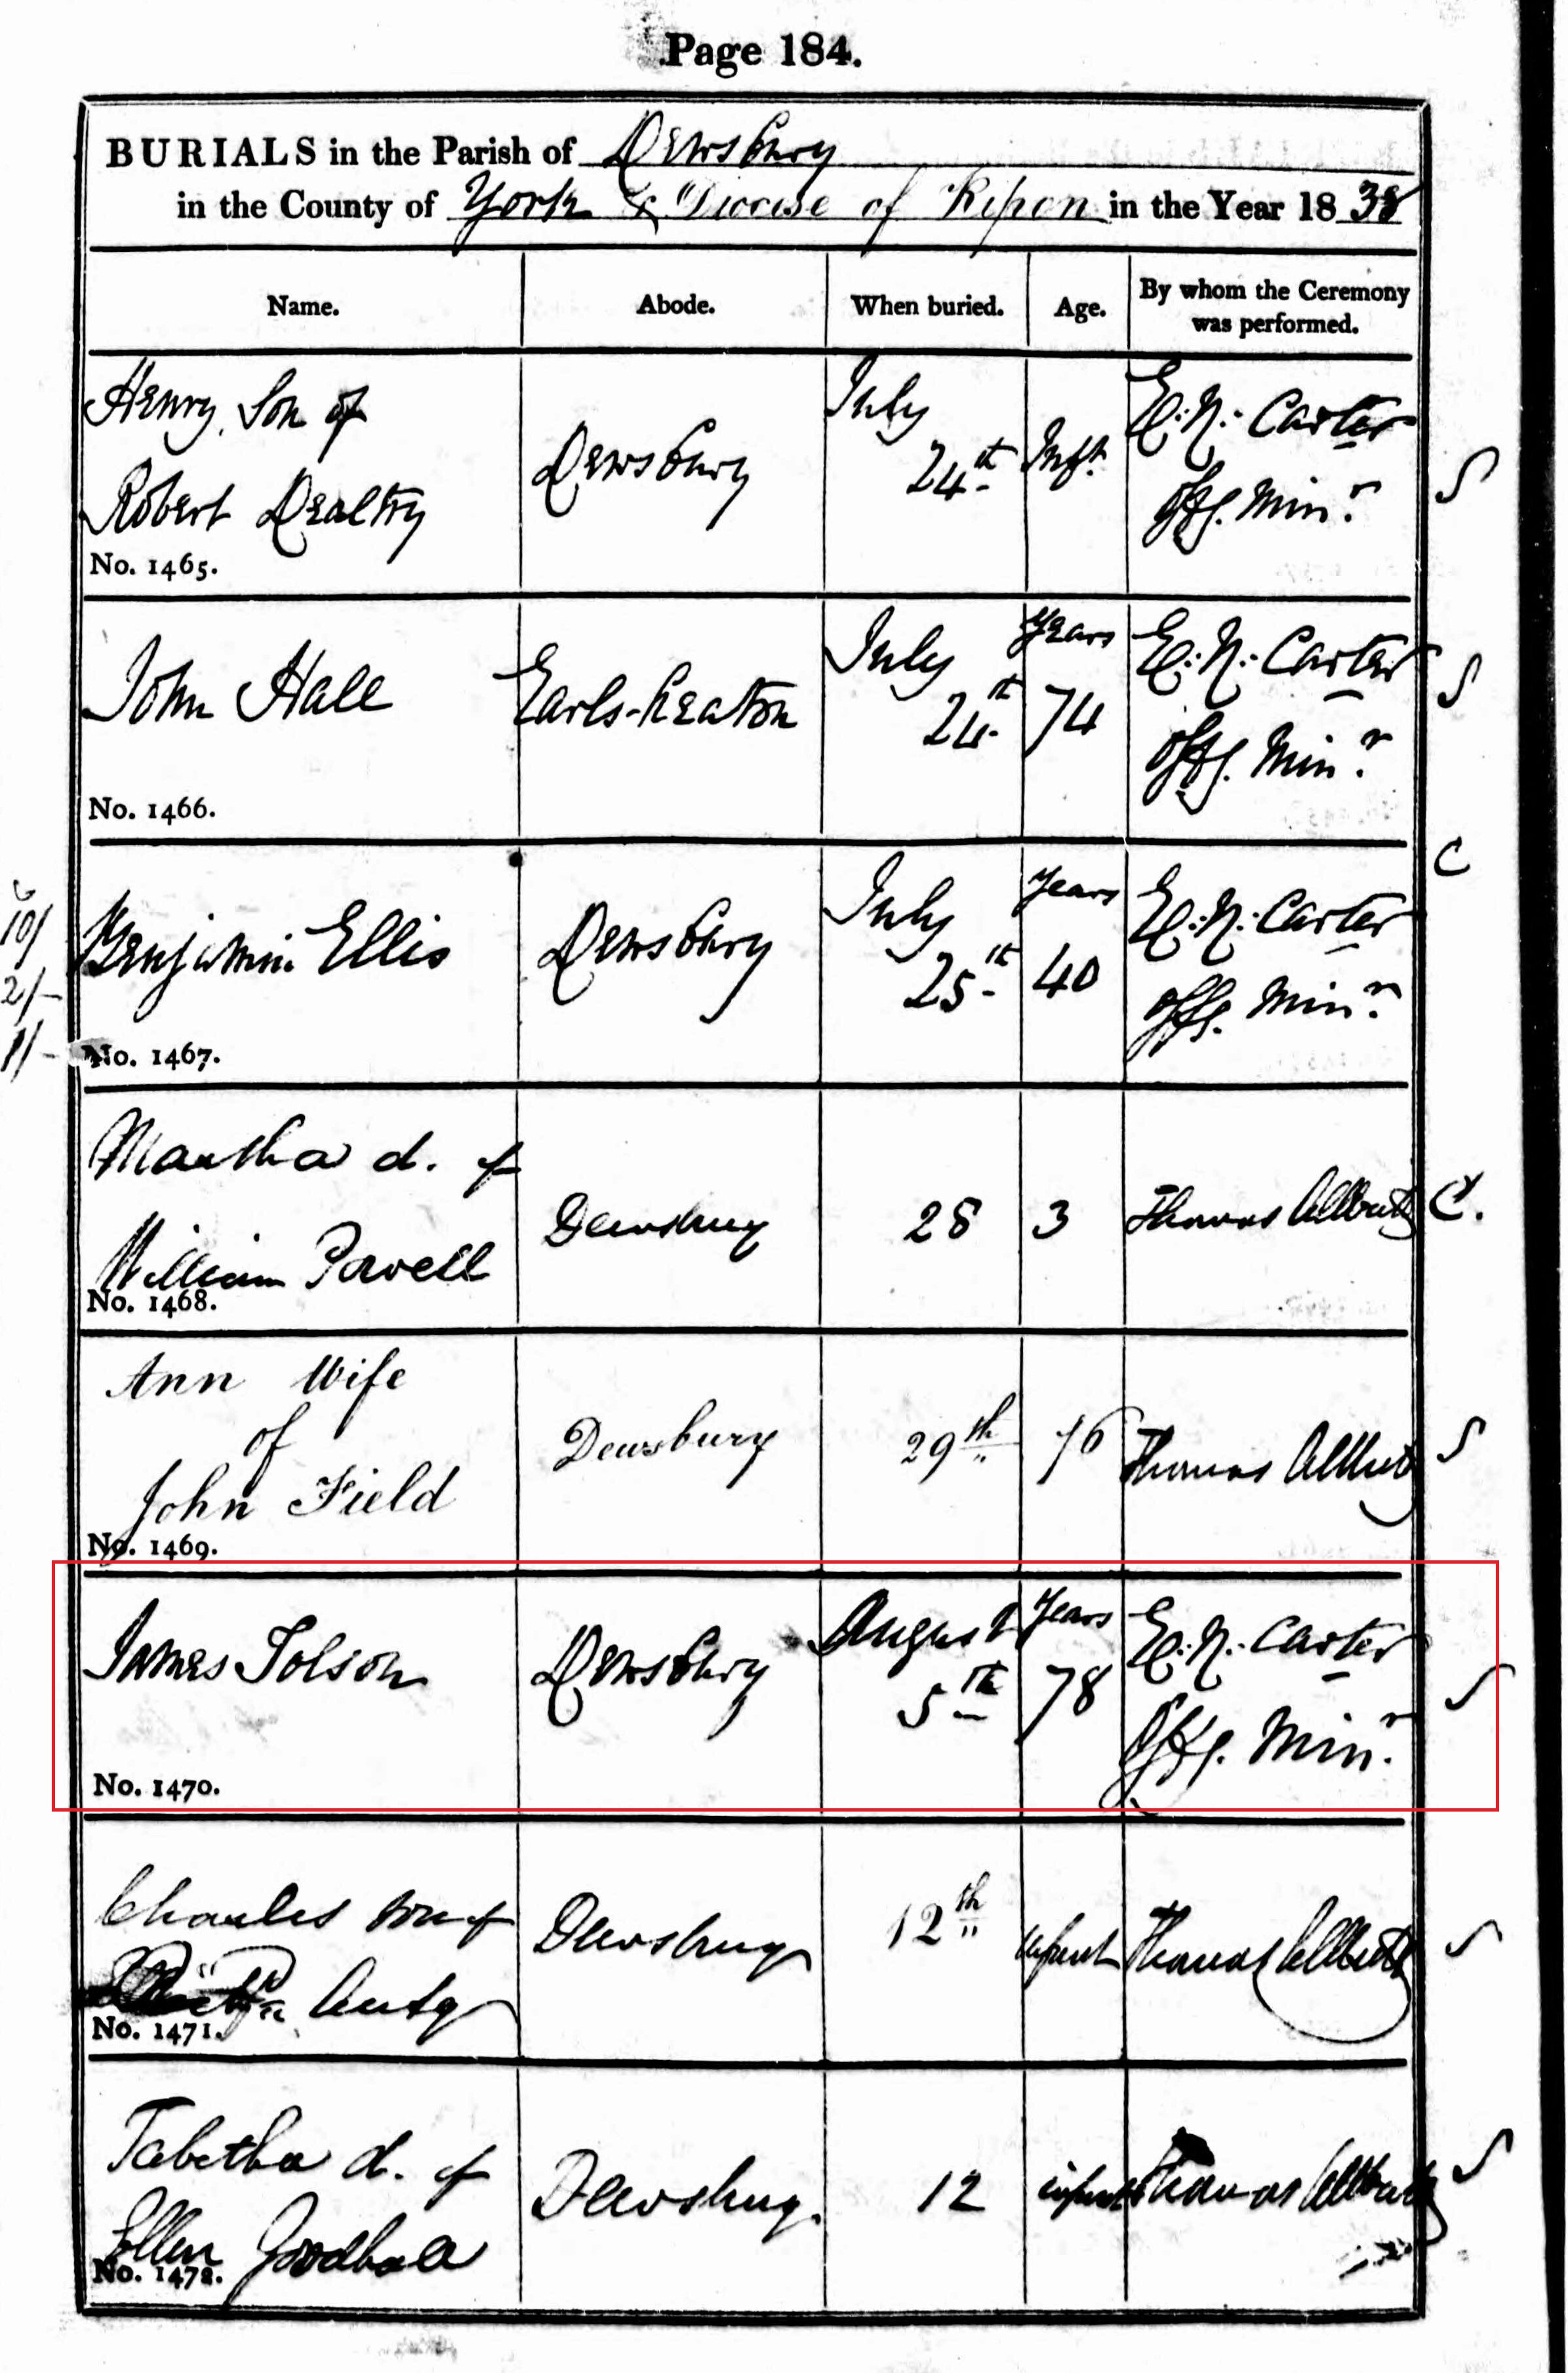 Page 184.
BURIALS in the Parish of Dewsbury
in the County of York & Diocese of Ripon in the Year 1838
Name. Abode. When buried. Age. By whom the Ceremony was performed.
Henry, Son of
Robert Dealtry
No. 1465.
Dewsbury
July
24th
Inft.
E: N: Carter
Offg. Minr.
S
John Hall
No. 1466.
Earls-heaton
July
24th
Years
74
E: N: Carter
Offg. Minr.
S
10/
2/-
1/-
Benjamin Ellis
No. 1467.
Dewsbury
July
25th
Years
40
E: N: Carter
Offg. Minr.
C
Martha d. of
William Powell
No. 1468.
Dewsbury
28
3
Thomas Allbutt
C.
Ann Wife
of
John Field
No. 1469.
Dewsbury
29th
76
Thomas Allbutt
S
James Tolson
No. 1470.
Dewsbury
August
5th
Years
78
E: N: Carter
Offg. Minr.
S
Charles son of
Auty
No. 1471.
Dewsbury
12th
infant
Thomas Allbutt
S
Tabetha d. of
Ellen Goodhall
No. 1472.
Dewsbury.
12
infant
Thomas Allbutt
S